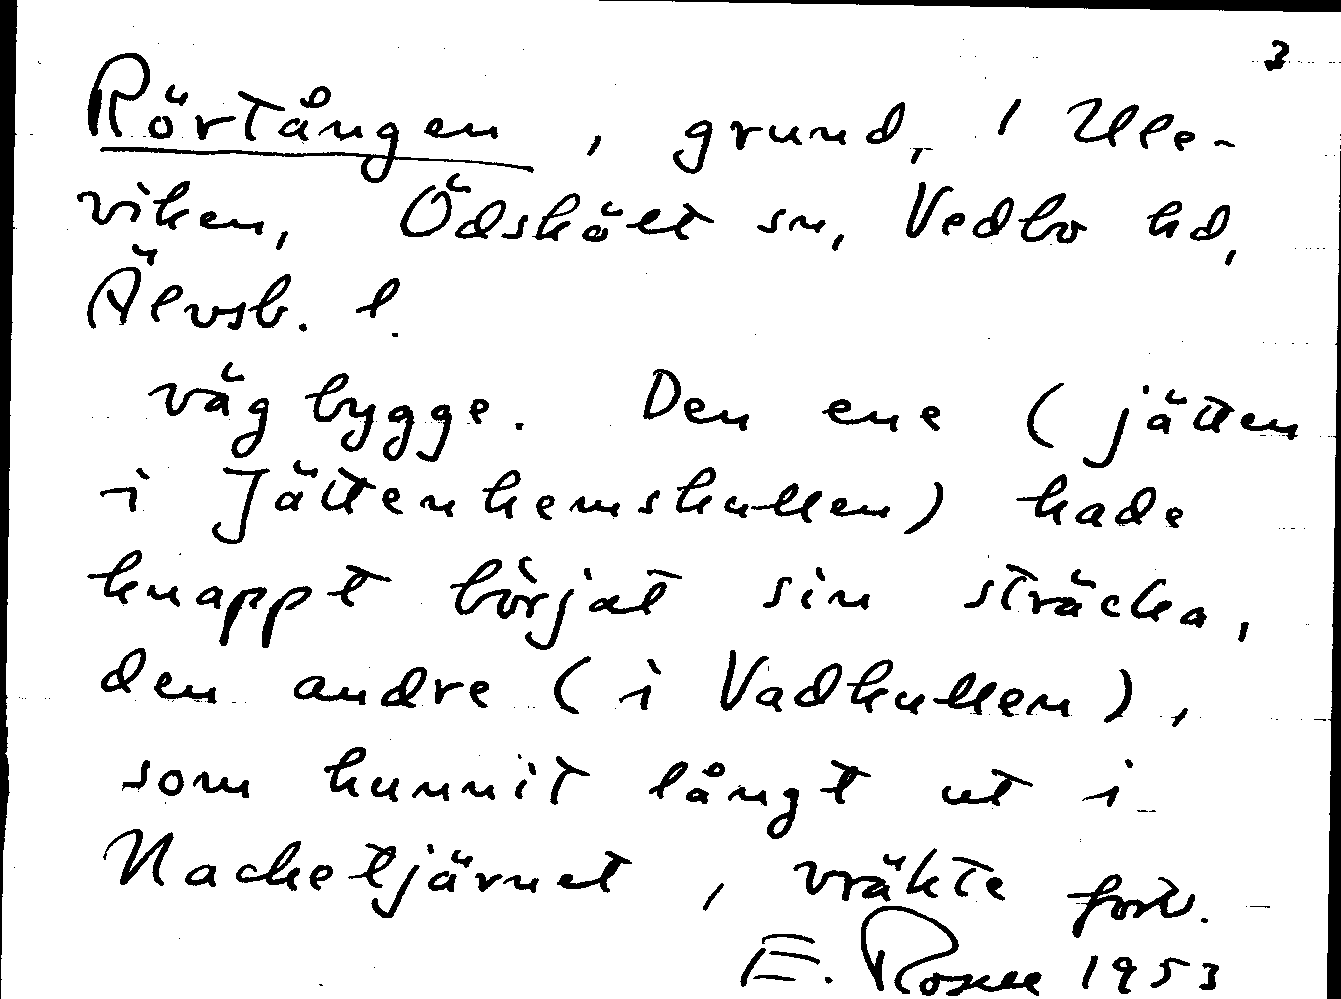 3
Rörtången, grund, i Ulle-
viken, Ödskölt sn, Vedbo hd,
Älvsb. l.
vägbygge. Den ene (jätten
i Jättenhemskullen) hade
knappt börjat sin sträcka,
den andre (i Vadkullen),
som hunnit långt ut i
Nacketjärnet, vräkte
E. Rosell 1953